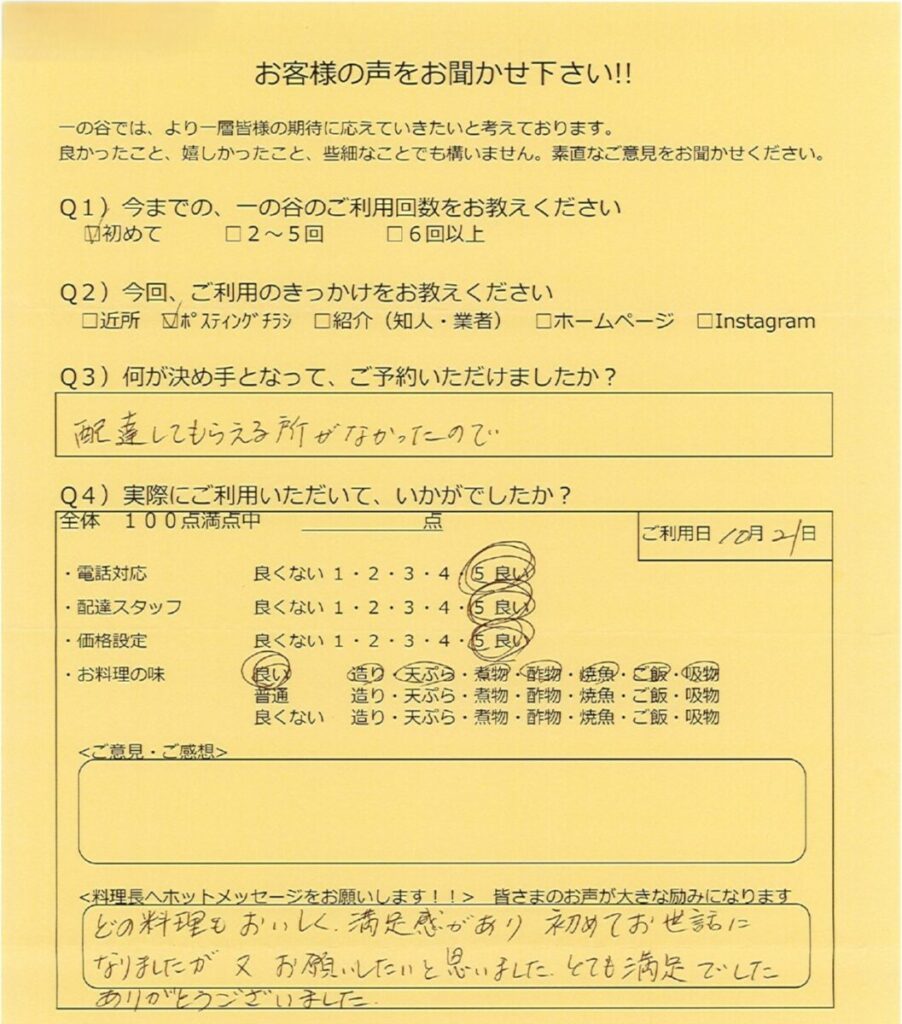 お客様の声をお聞かせ下さい!!
一の谷では、より一層皆様の期待に応えていきたいと考えております。
良かったこと、嬉しかったこと、些細なことでも構いません。素直なご意見をお聞かせください。
Q1）今までの、一の谷のご利用回数をお教えください
☑初めて □2～5回 □6回以上
Q2）今回、ご利用のきっかけをお教えください
□近所 ☑ﾎﾟｽﾃｨﾝｸﾞﾁﾗｼ □紹介（知人・業者） □ホームページ □Instagram
Q3）何が決め手となって、ご予約いただけましたか？
配達してもらえる所がなかったので
Q4）実際にご利用いただいて、いかがでしたか？
全体 100点満点中 ＿＿＿＿＿点
ご利用日 10月21日
・電話対応 良くない 1・2・3・4・5 良い
・配達スタッフ 良くない 1・2・3・4・5 良い
・価格設定 良くない 1・2・3・4・5 良い
・お料理の味 良い 造り・天ぷら・煮物・酢物・焼魚・ご飯・吸物
普通 造り・天ぷら・煮物・酢物・焼魚・ご飯・吸物
良くない 造り・天ぷら・煮物・酢物・焼魚・ご飯・吸物
<ご意見・ご感想>
<料理長へホットメッセージをお願いします！！> 皆さまのお声が大きな励みになります
どの料理もおいしく、満足感があり 初めてお世話に
なりましたが 又 お願いしたいと思いました。とても満足でした
ありがとうございました。